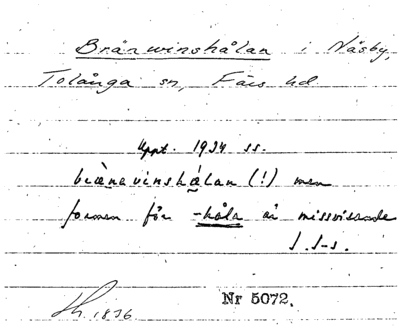 Brånwinshålan i Näsby,
Tolånga sn, Färs hd.
Uppt. 1934 ss.
brænavinshålan (!) men
formen för -håla är missvisande
1876
Nr 5072.